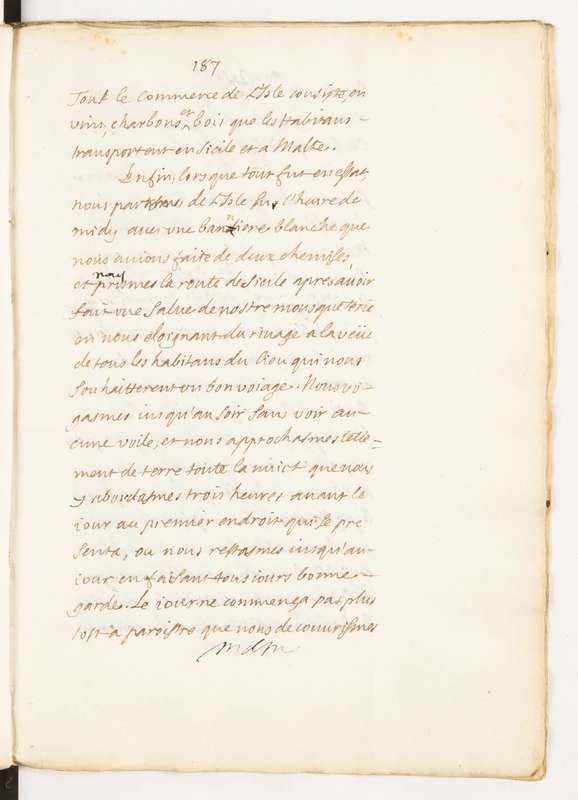 187
Tout le Commerce de L'Isle consiste, en
vins, charbons et bois que les Habitans
transportent en Sicile et a Malte.
Enfin, lors que tout fut en estat,
nous partismes de L'Isle sur l'heure de
midy avec vne baniere blanche que
nous auions faite de deux chemises
et prismes la route de Sicile apres avoir
fait vne salue de nostre mousqueterie
en nous eloignant du riuage a la veüe
de tous les habitans du lieu qui nous
souhaitterent vn bon voiage. Nous vo-
gasmes iusqu'au soir sans voir au-
cune voile, et nous approchasmes telle-
ment de terre toute la nuict que nous
y abordasmes trois heures auant le
iour au premier endroit qui se pre
senta, ou nous restasmes iusqu'au
iour en faisant tousiours bonne
garde. Le iour ne commença pas plus
tost a paroistre que nous decouurismes